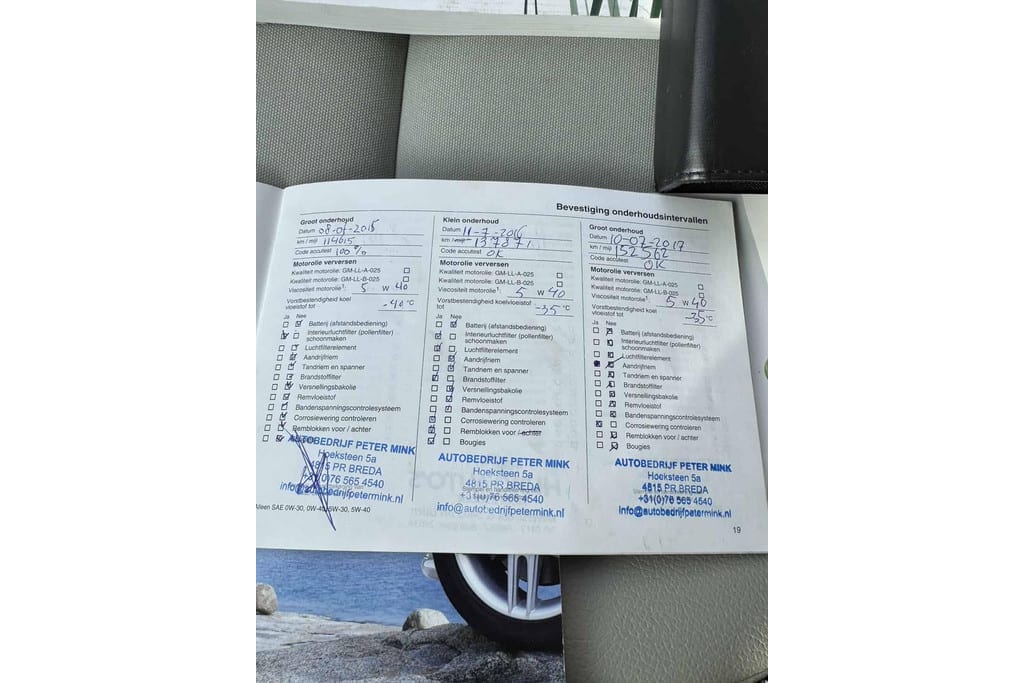 Bevestiging onderhoudsintervallen
Groot onderhoud
Datum 08-07-2015
km / mijl 114615
Code accutest 100 %
Motorolie verversen
Kwaliteit motorolie: GM-LL-A-025
Kwaliteit motorolie: GM-LL-B-025
Viscositeit motorolie¹: 5 W 40
Vorstbestendigheid koel
vloeistof tot -40 °C
Ja Nee
Batterij (afstandsbediening)
Interieurluchtfilter (pollenfilter)
schoonmaken
Luchtfilterelement
Aandrijfriem
Tandriem en spanner
Brandstoffilter
Versnellingsbakolie
Remvloeistof
Bandenspanningscontrolesysteem
Corrosiewering controleren
Remblokken voor / achter
AUTOBEDRIJF PETER MINK
Hoeksteen 5a
4815 PR BREDA
+31(0)76 565 4540
info@autobedrijfpetermink.nl
Alleen SAE 0W-30, 0W-40, 5W-30, 5W-40
Klein onderhoud
Datum 11-7-2016
km / mijl 137871
Code accutest OK
Motorolie verversen
Kwaliteit motorolie: GM-LL-A-025
Kwaliteit motorolie: GM-LL-B-025
Viscositeit motorolie¹: 5 W 40
Vorstbestendigheid koelvloeistof
tot -35 °C
Ja Nee
Batterij (afstandsbediening)
Interieurluchtfilter (pollenfilter)
schoonmaken
Luchtfilterelement
Aandrijfriem
Tandriem en spanner
Brandstoffilter
Versnellingsbakolie
Remvloeistof
Bandenspanningscontrolesysteem
Corrosiewering controleren
Remblokken voor / achter
Bougies
AUTOBEDRIJF PETER MINK
Hoeksteen 5a
4815 PR BREDA
+31(0)76 565 4540
info@autobedrijfpetermink.nl
Groot onderhoud
Datum 10-07-2017
km / mijl 152562
Code accutest OK
Motorolie verversen
Kwaliteit motorolie: GM-LL-A-025
Kwaliteit motorolie: GM-LL-B-025
Viscositeit motorolie¹: 5 W 40
Vorstbestendigheid koel
vloeistof tot -35 °C
Ja Nee
Batterij (afstandsbediening)
Interieurluchtfilter (pollenfilter)
schoonmaken
Luchtfilterelement
Aandrijfriem
Tandriem en spanner
Brandstoffilter
Versnellingsbakolie
Remvloeistof
Bandenspanningscontrolesysteem
Corrosiewering controleren
Remblokken voor / achter
Bougies
AUTOBEDRIJF PETER MINK
Hoeksteen 5a
4815 PR BREDA
+31(0)76 565 4540
info@autobedrijfpetermink.nl
19